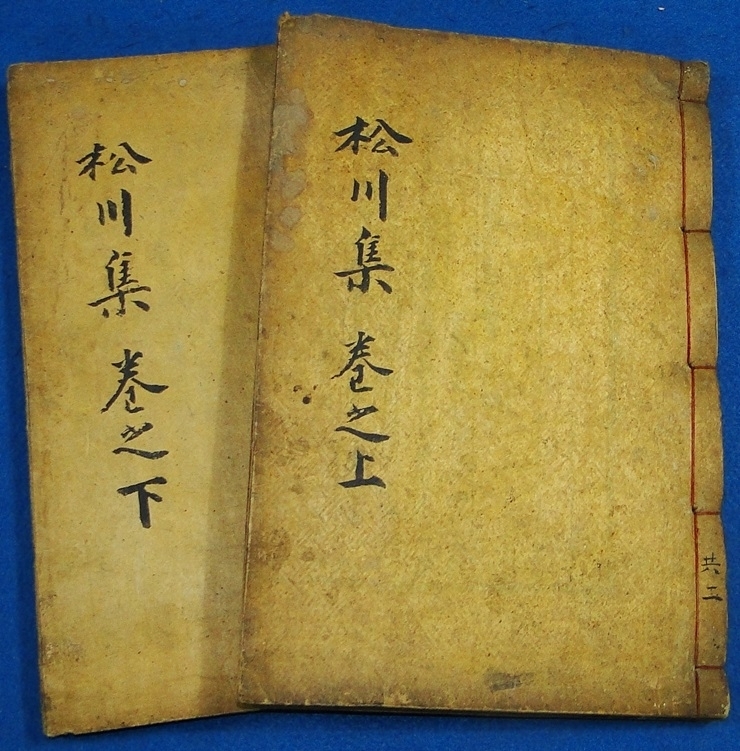 松川集 卷之上
共二
松川集 卷之下